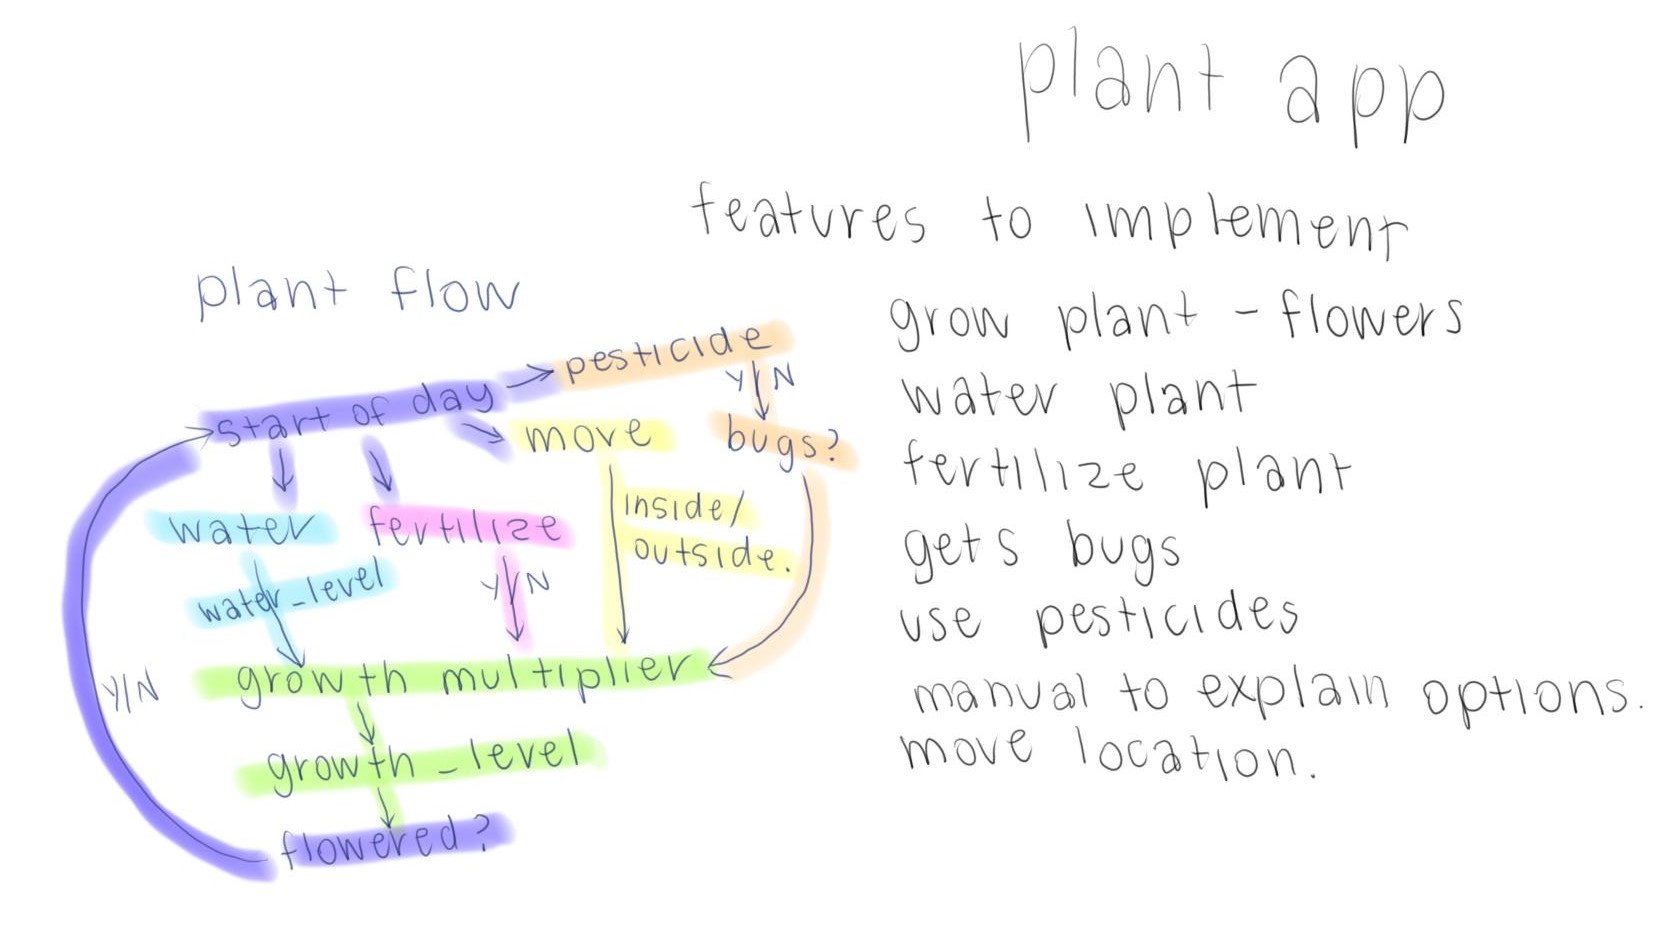 plant app
features to implement
grow plant - flowers
water plant
fertilize plant
gets bugs
use pesticides
manual to explain options.
move location.
plant flow
start of day
pesticide
Y/N
bugs?
move
inside/
outside.
water
fertilize
water_level
Y/N
growth multiplier
Y/N
growth_level
flowered?